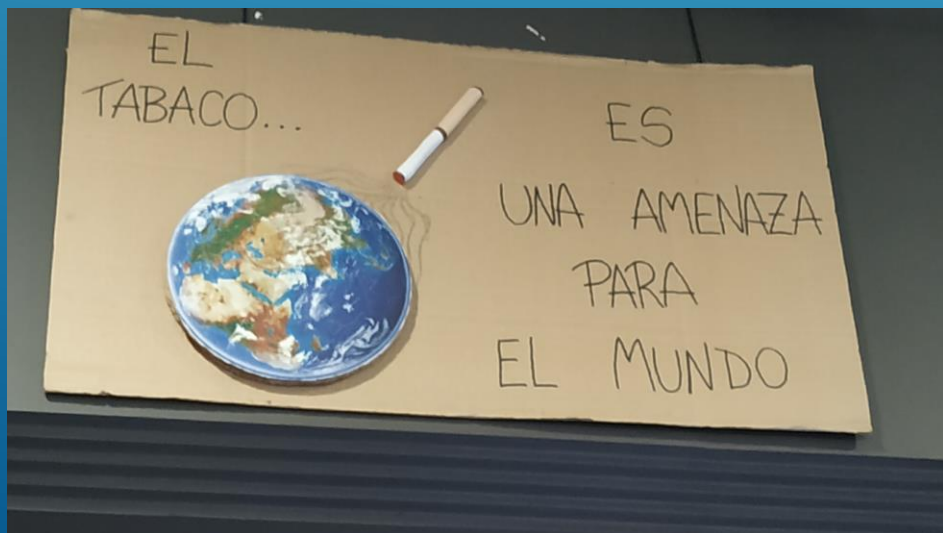 EL
TABACO...
ES
UNA AMENAZA
PARA
EL MUNDO